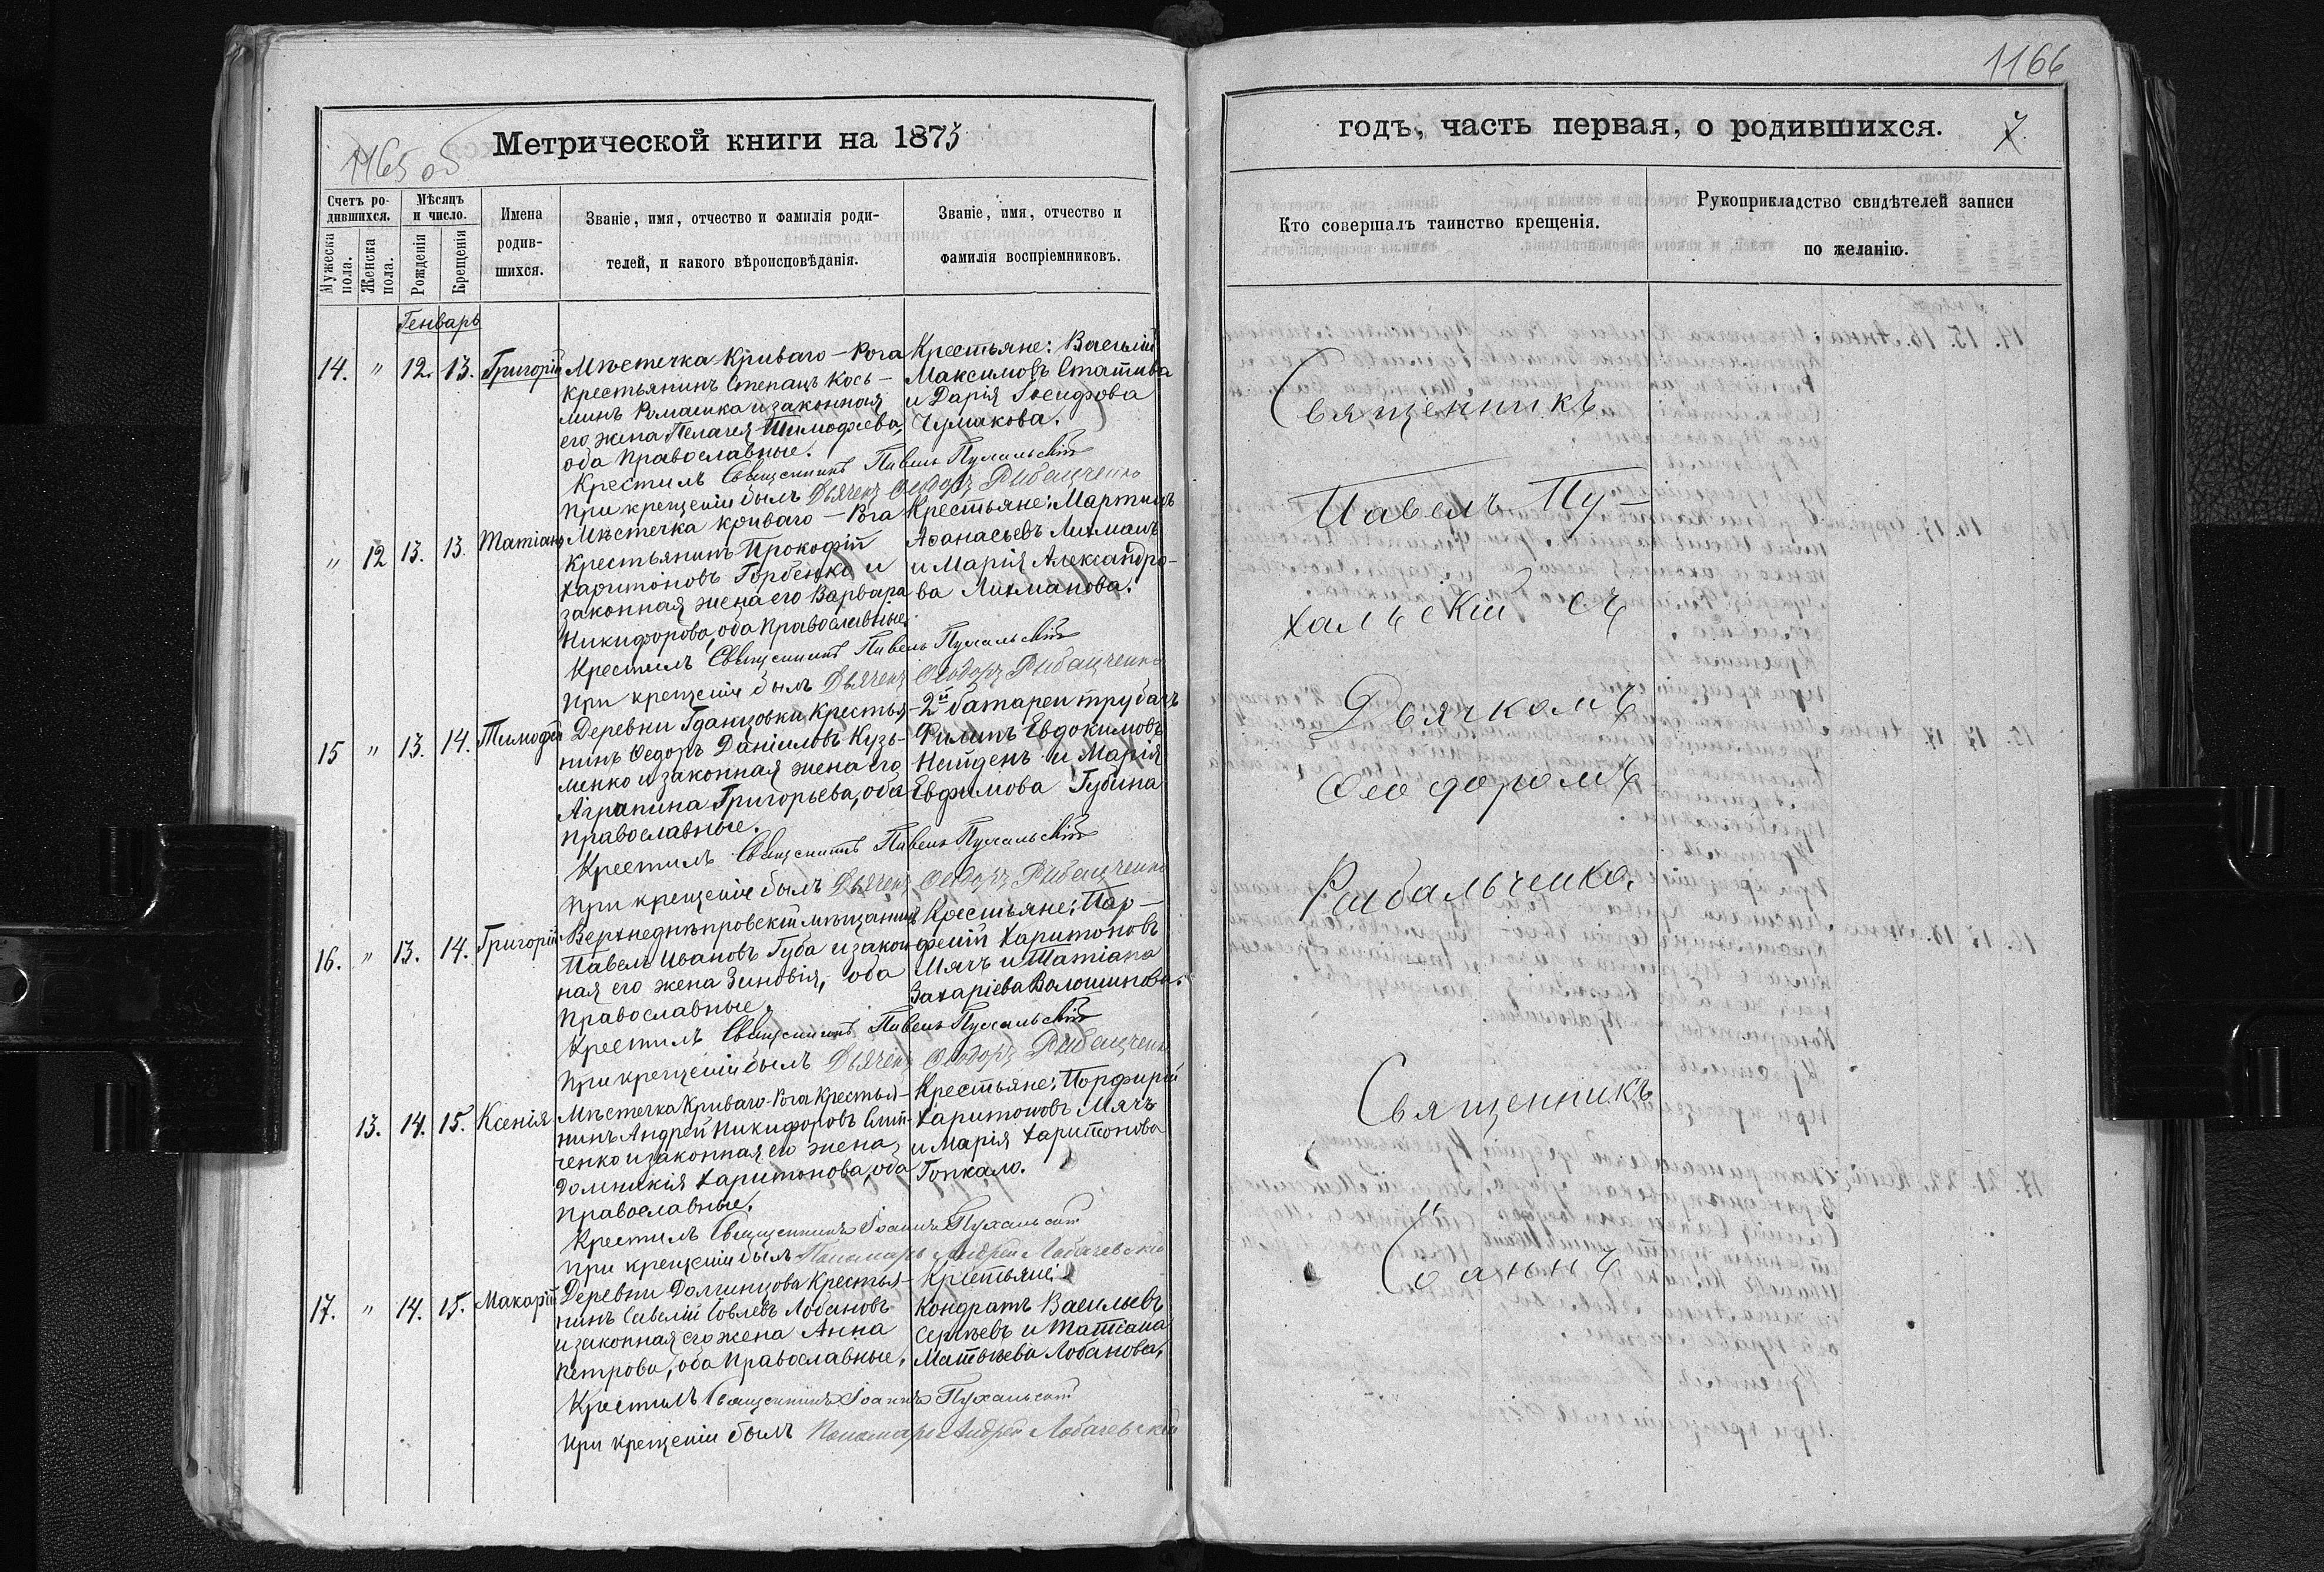 1165 об
Метрической книги на 1873
Счетъ ро-
дившихся.
Мужеска пола.
Женска пола.
Мѣсяцъ
и число.
Рожденія
Крещенія
Имена
родив-
шихся.
Званіе, имя, отчество и фамилія роди-
телей, и какого вѣроисповѣданія.
Званіе, имя, отчество и
фамилія воспріемниковъ.
Генварь
14. " 12. 13. Григорій
Мѣстечка Криваго-Рога
крестьянинъ Степанъ Кось-
минъ Ромашка и законная
его жена Пелагея Тимофѣева,
оба Православные.
Крестьяне: Василій
Максимовъ Статива
и Дарія Іосифова
Чумакова.
Крестилъ Священникъ Павелъ Пухальскій
При крещеніи былъ Дьячекъ Ѳеодоръ Рыбальченко
" 12 13. 13. Татіана
Мѣстечка Криваго-Рога
Крестьянинъ Прокофій
Харитоновъ Горбенко и
законная жена его Варвара
Никифорова, оба Православные.
Крестьяне: Мартинъ
Аѳанасьевъ Лихманъ
и Марія Александро-
ва Лихманова.
Крестилъ Священникъ Павелъ Пухальскій
При крещеніи былъ Дьячекъ Ѳеодоръ Рыбальченко
15 " 13. 14. Тимофей
Деревни Гданцовки Крестья-
нинъ Ѳедоръ Даніиловъ Кузь-
менко и законная жена его
Агрипина Григорьева, оба
Православные.
2й батареи трубачъ
Филипъ Евдокимовъ
Найденъ и Марія
Евфимова Губина
Крестилъ Священникъ Павелъ Пухальскій
При крещеніи былъ Дьячекъ Ѳеодоръ Рыбальченко
16. " 13. 14. Григорій
Верхнеднѣпровскій мѣщанинъ
Павелъ Ивановъ Губа и закон-
ная его жена Зиновія, оба
Православные.
Крестьяне: Пар-
феній Харитоновъ
Мячъ и Татіана
Захаріева Волошинова.
Крестилъ Священникъ Павелъ Пухальскій
При крещеніи былъ Дьячекъ Ѳеодоръ Рыбальченко
13. 14. 15. Ксенія
Мѣстечка Криваго-Рога Крестья-
нинъ Андрей Никифоровъ
ченко и законная его жена
Домникія Харитонова, оба
Православные.
Крестьяне: Порфирій
Харитоновъ Мячъ
и Марія Харитонова
Гопкало.
Крестилъ Священникъ Іоаннъ Пухальскій
При крещеніи былъ Пономарь Андрей Лобачевскій
17. " 14. 15. Макарій
Деревни Долгинцова Крестья-
нинъ Савелій Іовлевъ Лобановъ
и законная его жена Анна
Петрова, оба Православные.
Крестьяне:
Кондратъ Васильевъ
Сергѣевъ и Татіана
Матвѣева Лобанова.
Крестилъ Священникъ Іоаннъ Пухальскій
При крещеніи былъ Пономарь Андрей Лобачевскій
1166
годъ, часть первая, о родившихся.
7.
Кто совершалъ таинство крещенія.
Рукоприкладство свидѣтелей записи
по желанію.
Священникъ
Павелъ Пу-
хальскій съ
Дьячкомъ
Ѳеодоромъ
Рыбальченко.
Священникъ
Іоаннъ